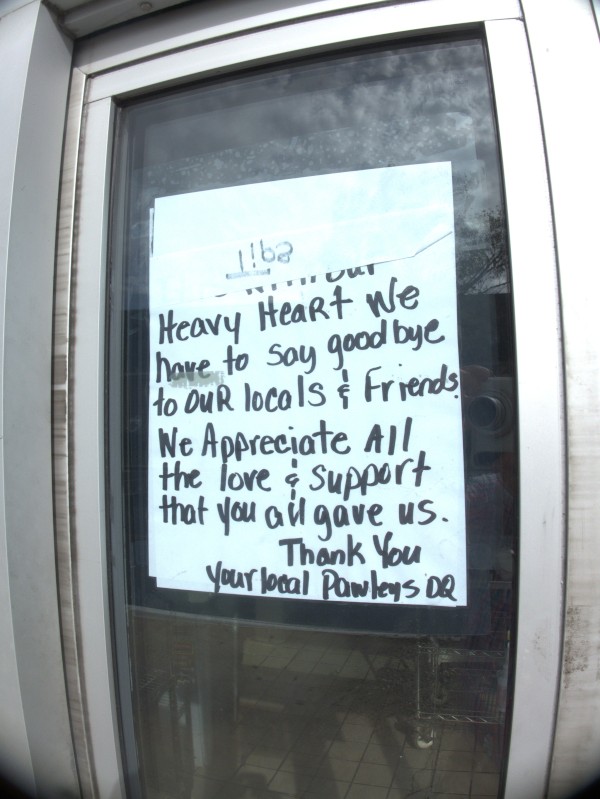 Tips
With Our
Heavy Heart We
have to say goodbye
to OUR locals & Friends
We Appreciate All
the love & support
that you all gave us.
Thank You
Your local Pawleys DQ